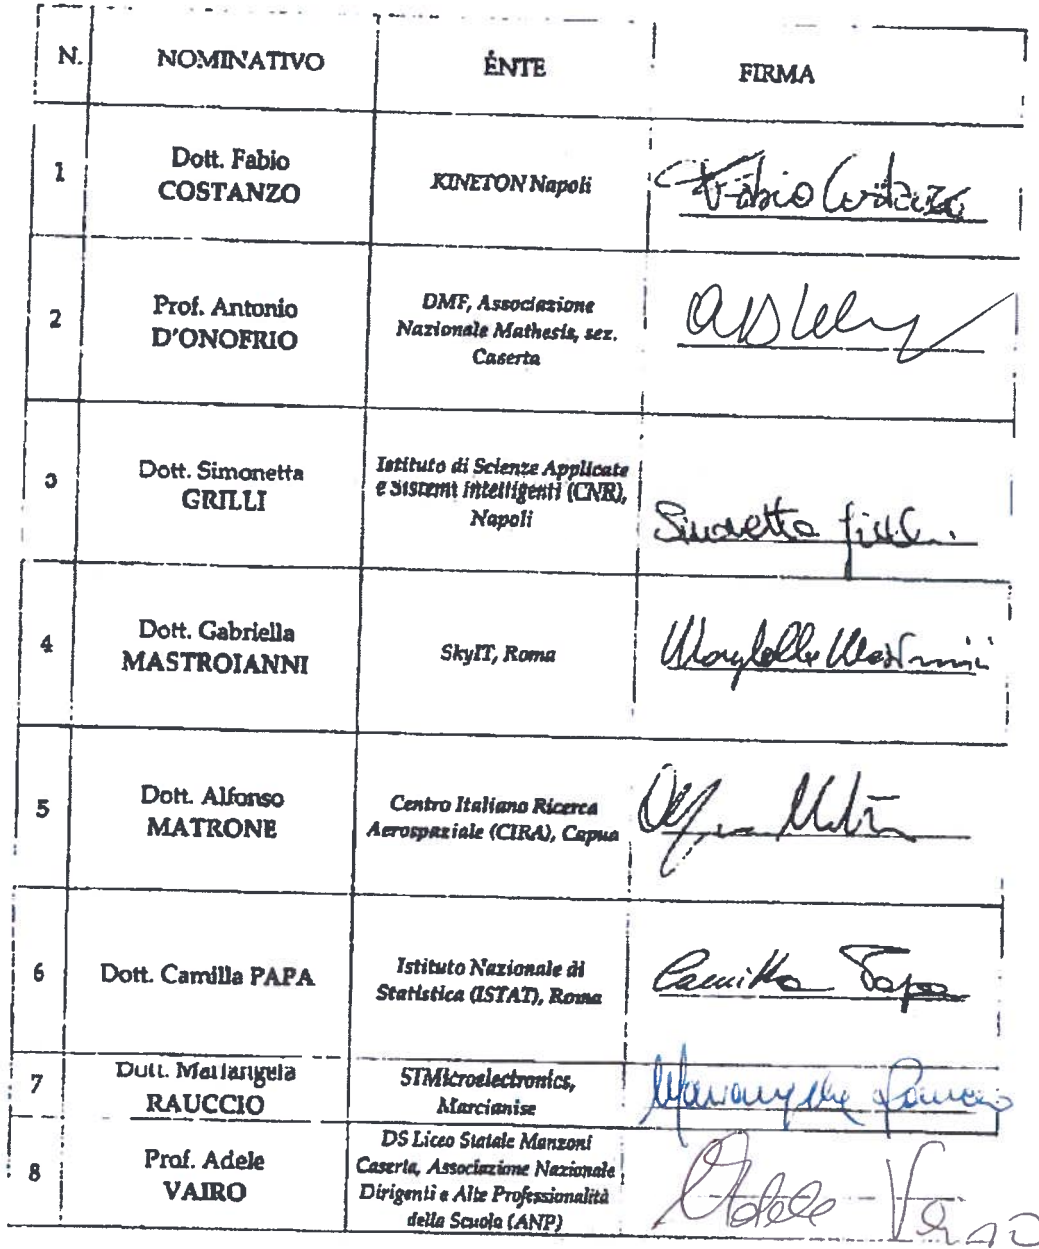 N. NOMINATIVO ÉNTE FIRMA
1
Dott. Fabio
COSTANZO
KINETON Napoli
Fabio Costanzo
2
Prof. Antonio
D'ONOFRIO
DMF, Associazione
Nazionale Mathesis, sez.
Caserta
3
Dott. Simonetta
GRILLI
Istituto di Scienze Applicate
e Sistemi Intelligenti (CNR),
Napoli
Simonetta Grilli
4
Dott. Gabriella
MASTROIANNI
SkyIT, Roma
5
Dott. Alfonso
MATRONE
Centro Italiano Ricerca
Aerospaziale (CIRA), Capua
6
Dott. Camilla PAPA
Istituto Nazionale di
Statistica (ISTAT), Roma
Camilla Papa
7
Dott. Mariangela
RAUCCIO
STMicroelectronics,
Marcianise
Mariangela Rauccio
8
Prof. Adele
VAIRO
DS Liceo Statale Manzoni
Caserta, Associazione Nazionale
Dirigenti e Alte Professionalità
della Scuola (ANP)
Adele Vairo